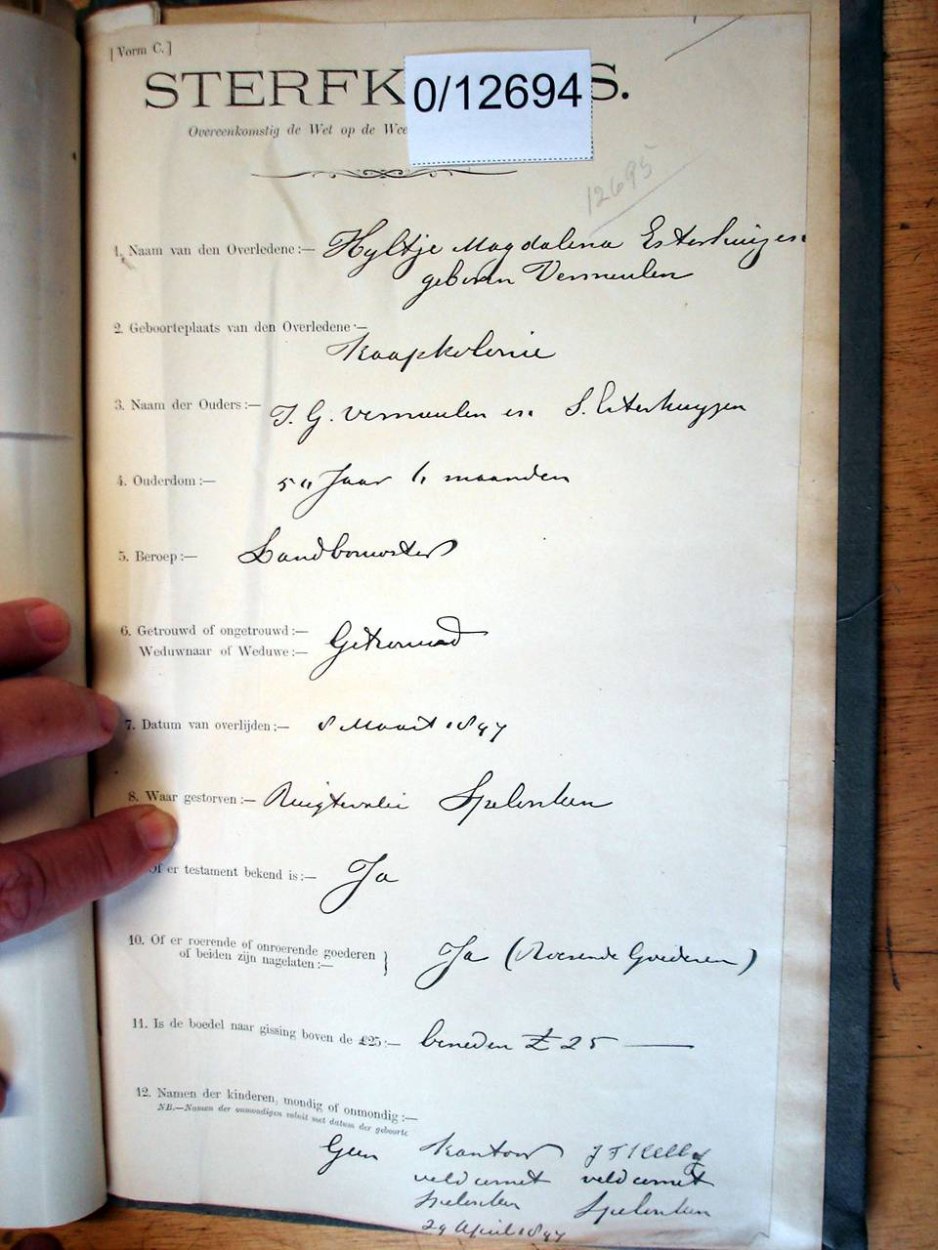 [Vorm C.]
STERFK S.
0/12694
Overeenkomstig de Wet op de Wee
12695
1. Naam van den Overledene:— Hyltje Magdalena Esterhuizen
geboren Vermeulen
2. Geboorteplaats van den Overledene:—
Kaapkolonie
3. Naam der Ouders:— J. G. Vermeulen en S. Esterhuyzen
4. Ouderdom:— Jaar maanden
5. Beroep:— Landbouwster
6. Getrouwd of ongetrouwd:— Getrouwd
Weduwnaar of Weduwe:—
7. Datum van overlijden:— 8 Maart 1897
8. Waar gestorven:— Ruigtevlei Spelonken
Of er testament bekend is:— Ja
10. Of er roerende of onroerende goederen
of beiden zijn nagelaten:— Ja (Roerende Goederen)
11. Is de boedel naar gissing boven de £25:— beneden £25 —
12. Namen der kinderen, mondig of onmondig:—
NB.—Namen der onmondigen voluit met datum der geboorte
Geen Kantoor J F Kelly
veldcornet veldcornet
Spelonken Spelonken
29 April 1897